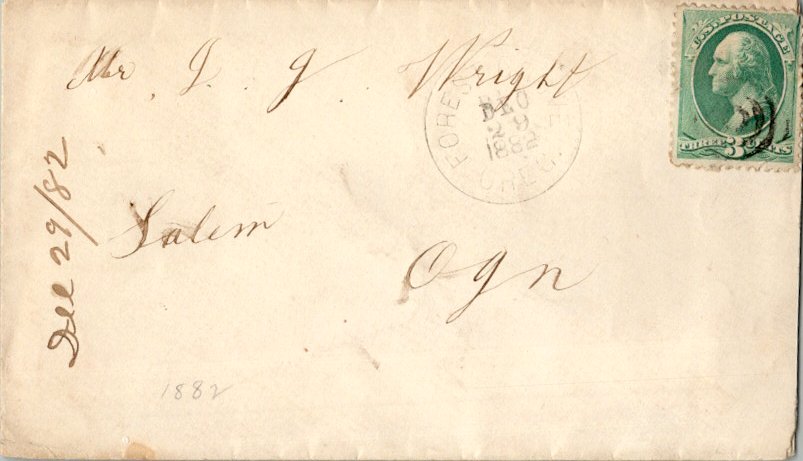 U.S. POSTAGE
THREE 3 CENTS
Mr. J. J. Wright
DEC
29
1882
OREG.
Salem
Ogn
Dec 29/82
1882